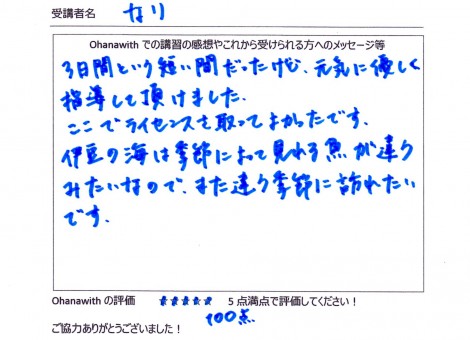 受講者名 なり
Ohanawith での講習の感想やこれから受けられる方へのメッセージ等
3日間という短い間だったけど、元気に優しく
指導して頂けました。
ここでライセンスを取ってよかったです。
伊豆の海は季節によって見れる魚が違う
みたいなので、また違う季節に訪れたい
です。
Ohanawith の評価 ★★★★★ 5 点満点で評価してください！
100点
ご協力ありがとうございました！